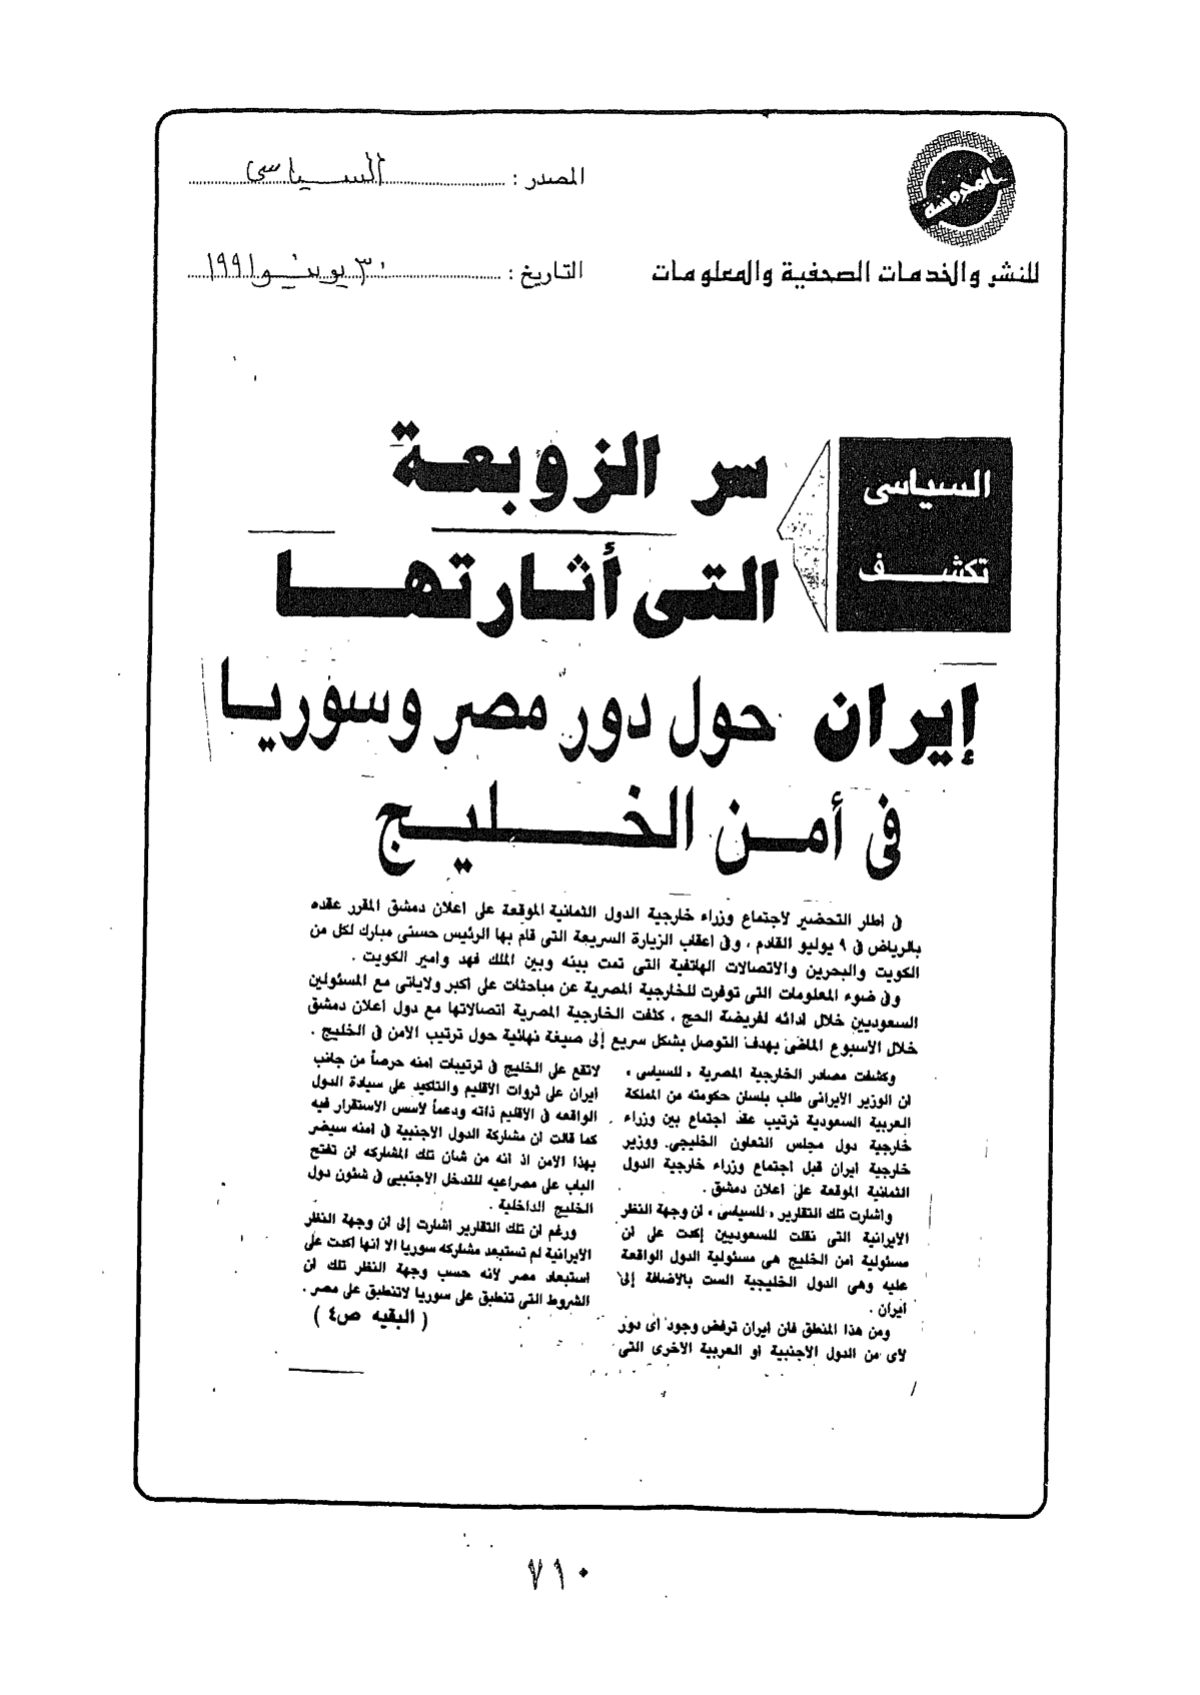 المحروسة
للنشر والخدمات الصحفية والمعلومات
المصدر : السياسى
التاريخ : ٣٠ يونيو ١٩٩١
السياسى
تكشف
سر الزوبعة
التى أثارتها
إيران حول دور مصر وسوريا
فى أمن الخليج
فى اطار التحضير لاجتماع وزراء خارجية الدول الثمانية الموقعة على اعلان دمشق المقرر عقده
بالرياض فى ٩ يوليو القادم ، وفى اعقاب الزيارة السريعة التى قام بها الرئيس حسنى مبارك لكل من
الكويت والبحرين والاتصالات الهاتفية التى تمت بينه وبين الملك فهد وامير الكويت .
وفى ضوء المعلومات التى توفرت للخارجية المصرية عن مباحثات على اكبر ولاياتى مع المسئولين
السعوديين خلال ادائه لفريضة الحج ، كثفت الخارجية المصرية اتصالاتها مع دول اعلان دمشق
خلال الاسبوع الماضى بهدف التوصل بشكل سريع إلى صيغة نهائية حول ترتيب الامن فى الخليج .
وكشفت مصادر الخارجية المصرية « للسياسى »
ان الوزير الايرانى طلب بلسان حكومته من المملكة
العربية السعودية ترتيب عقد اجتماع بين وزراء
خارجية دول مجلس التعاون الخليجى ووزير
خارجية ايران قبل اجتماع وزراء خارجية الدول
الثمانية الموقعة على اعلان دمشق .
واشارت تلك التقارير « للسياسى » ان وجهة النظر
الايرانية التى نقلت للسعوديين إكدت على ان
مسئولية امن الخليج هى مسئولية الدول الواقعة
عليه وهى الدول الخليجية الست بالاضافة إلى
ايران .
ومن هذا المنطق فان ايران ترفض وجود اى دور
لاى من الدول الاجنبية او العربية الاخرى التى
لاتقع على الخليج فى ترتيبات امنه حرصاً من جانب
ايران على ثروات الاقليم والتاكيد على سيادة الدول
الواقعه فى الاقليم ذاته ودعماً لأسس الاستقرار فيه
كما قالت ان مشاركة الدول الاجنبية فى امنه سيضر
بهذا الامن اذ انه من شان تلك المشاركه ان تفتح
الباب على مصراعيه للتدخل الاجنبيى فى شئون دول
الخليج الداخلية .
ورغم ان تلك التقارير اشارت إلى ان وجهة النظر
الايرانية لم تستبعد مشاركه سوريا الا انها اكدت على
استبعاد مصر لأنه حسب وجهة النظر تلك ان
الشروط التى تنطبق على سوريا لاتنطبق على مصر .
( البقيه ص٤ )
٧١٠